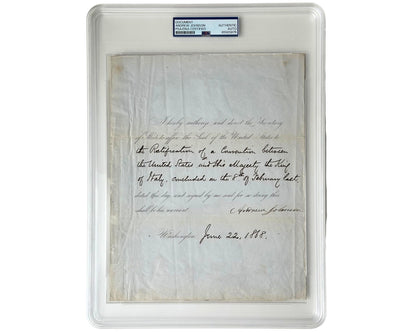 DOCUMENT
ANDREW JOHNSON
PSA/DNA CERTIFIED
AUTHENTIC
AUTO
I hereby authorize and direct the Secretary
of State to affix the Seal of the United States to
the Ratification of a Convention between
the United States and His Majesty the King
of Italy, concluded on the 8th of February last,
dated this day, and signed by me and for so doing this
shall be his warrant.
Andrew Johnson
Washington, June 22, 1868.